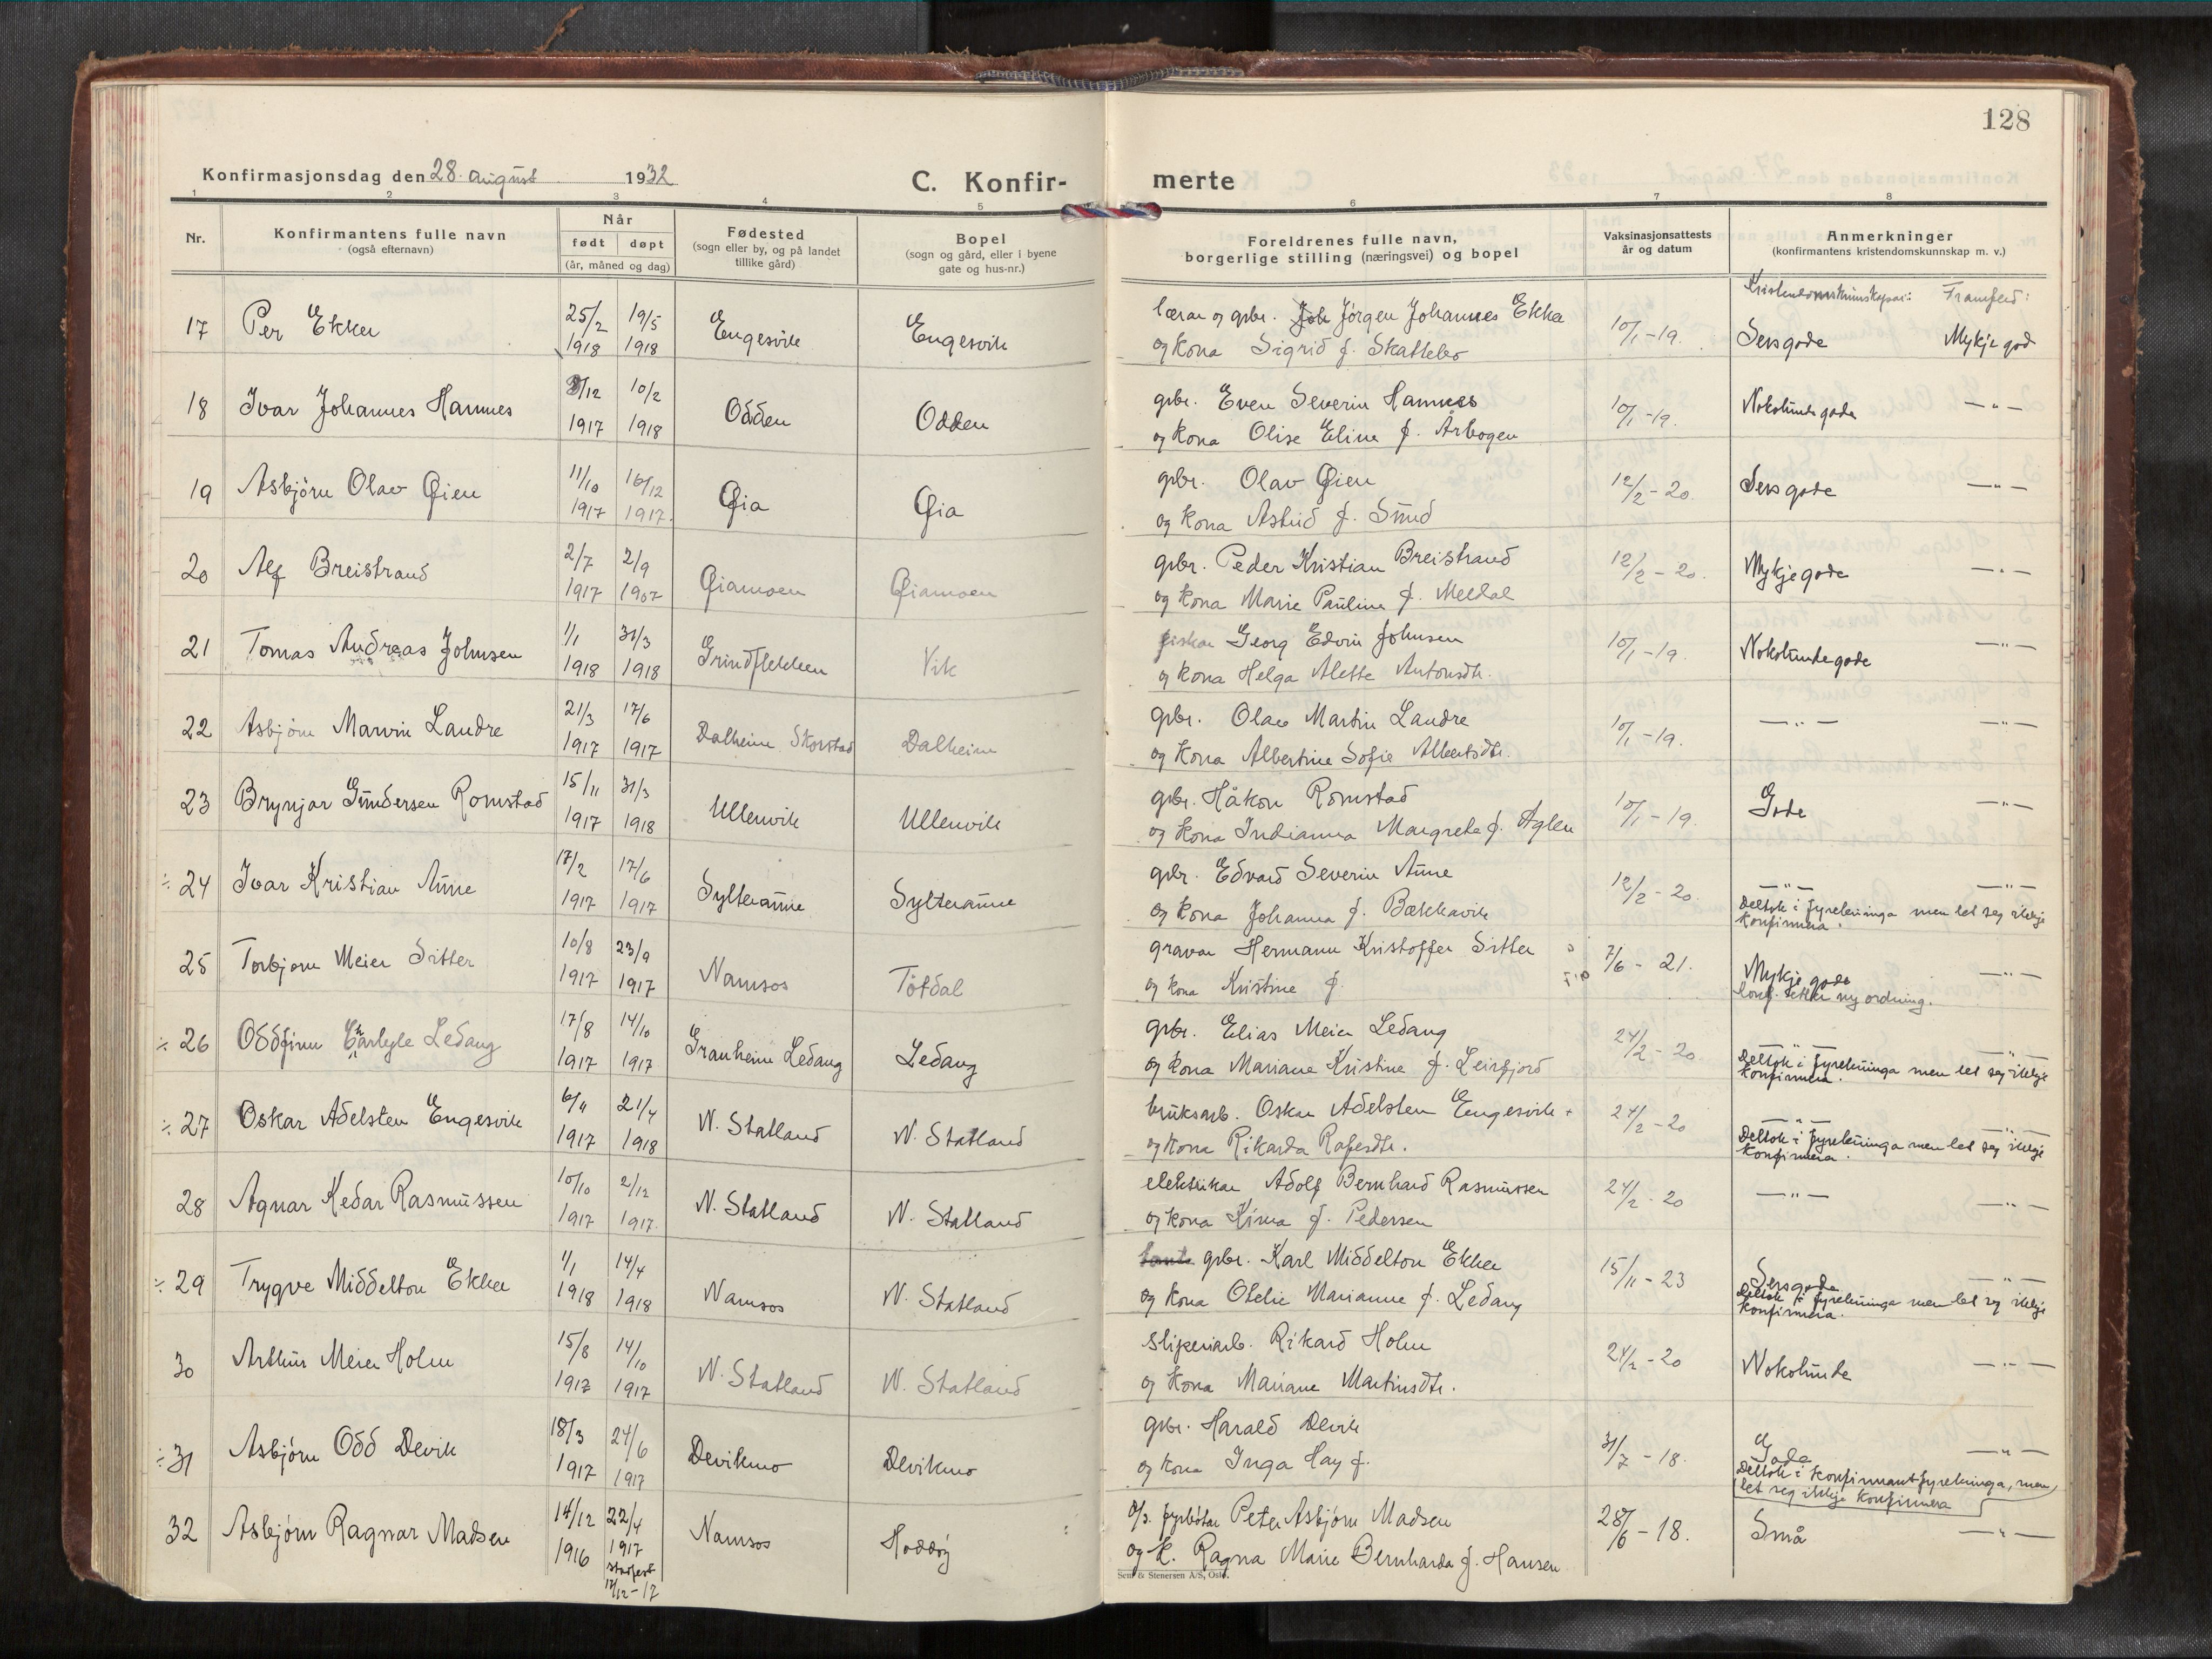 128
Konfirmasjonsdag den 28. august 1932
C. Konfir- merte
1 2 3 4 5 6 7 8
Nr.
Konfirmantens fulle navn
(også efternavn)
Når
født døpt
(år, måned og dag)
Fødested
(sogn eller by, og på landet
tillike gård)
Bopel
(sogn og gård, eller i byene
gate og hus-nr.)
Foreldrenes fulle navn,
borgerlige stilling (næringsvei) og bopel
Vaksinasjonsattests
år og datum
Anmerkninger
(konfirmantens kristendomskunnskap m. v.)
Kristendomskunnskapar: Framferd:
17 Per Ekker 25/2 1918 19/5 1918 Engesvik Engesvik
lærar og gbr. Jørgen Johannes Ekker
og kona Sigrid f. Skatlebo
10/1-19. Sers gode Mykje god
18 Ivar Johannes Hamnes /12 1917 10/2 1918 Odden Odden
gbr. Even Severin Hamnes
og kona Olise Eline f. Årbogen
10/1-19. Nokolunde gode —"—
19 Asbjørn Olav Øien 11/10 1917 16/12 1917. Øia Øia
gbr. Olav Øien
og kona Astrid f. Sund
12/2-20. Sers gode —"—
20 Alf Breistrand 2/7 1917 2/9 1907 Øiamoen Øiamoen
gbr. Peder Kristian Breistrand
og kona Marie Pauline f. Meldal
12/2-20. Mykje gode —"—
21 Tomas Andreas Johnsen 1/1 1918 31/3 1918 Grindflekken Vik
fiskar Georg Edvin Johnsen
og kona Helga Alette Antonsdtr.
10/1-19. Nokolunde gode —"—
22 Asbjørn Marvin Landre 21/3 1917 17/6 1917 Dalheim Skorstad Dalheim
gbr. Olav Martin Landre
og kona Albertine Sofie Albertsdtr.
10/1-19. —"— —"—
23 Brynjar Gundersen Romstad 15/11 1917 31/3 1918 Ullenvik Ullenvik
gbr. Håkon Romstad
og kona Indianna Margrete f. Aglen
10/1-19. Gode —"—
÷ 24 Ivar Kristian Aune 17/2 1917 17/6 1917 Sylteraune Sylteraune
gbr. Edvard Severin Aune
og kona Johanna f. Bækkavik
12/2-20. —"— —"—
Deltok i fyrebuinga men let seg ikkje
konfirmera.
25 Torbjørn Meier Sitter 10/8 1917 23/9 1917 Namsos Tøtdal
gravar Hermann Kristoffer Sitter
og kona Kristine f.
7/6-21. Mykje gode —"—
konf. etter ny ordning.
÷ 26 Oddfinn Charlyle Ledang 17/8 1917 14/10 1917 Granheim Ledang Ledang
gbr. Elias Meier Ledang
og kona Mariane Kristine f. Leirfjord
24/2-20 —"— —"—
Deltok i fyrebuinga men let seg ikkje
konfirmera.
÷ 27 Oskar Adelsten Engesvik 6/11 1917 21/4 1918 N. Statland N. Statland
bruksarb. Oskar Adelsten Engesvik
og kona Rikarda Rafesdtr.
24/2-20 —"— —"—
Deltok i fyrebuinga men let seg ikkje
konfirmera.
28 Agnar Kedar Rasmussen 10/10 1917 2/12 1917. N. Statland N. Statland
elektrikar Adolf Bernhard Rasmussen
og kona Kirna f. Pedersen
24/2-20 —"— —"—
÷ 29 Trygve Middelton Ekker 1/1 1918 14/4 1918 Namsos N. Statland
gbr. Karl Middelton Ekker
og kona Otelie Marianne f. Ledang
15/11-23 Sers gode —"—
Deltok i fyrebuinga men let seg ikkje
konfirmera.
30 Arthur Meier Holm 15/8 1917 14/10 1917 N. Statland N. Statland
sliperiarb. Rikard Holm
og kona Mariane Martinsdtr.
24/2-20 Nokolunde —"—
÷ 31 Asbjørn Odd Devik 18/3 1917 24/6 1917 Devikmo Devikmo
gbr. Harald Devik
og kona Inga Hay f.
31/7-18. Gode —"—
Deltok i konfirmantfyrebuinga, men
let seg ikkje konfirmera
32 Asbjørn Ragnar Madsen 14/12 1916 22/4 1917 stadfest 12/12-17 Namsos Hoddøy
fyrbøtar Peter Asbjørn Madsen
og k. Ragna Marie Bernharda f. Hansen
28/6-18. Små —"—
Sem & Stenersen A/S, Oslo.